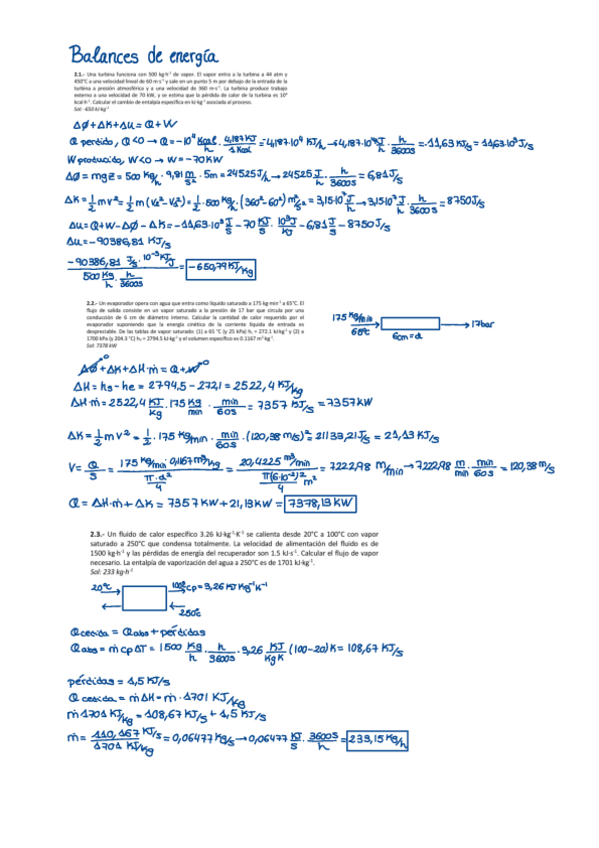 Balances de energía
2.1.- Una turbina funciona con 500 kg·h⁻¹ de vapor. El vapor entra a la turbina a 44 atm y
450°C a una velocidad lineal de 60 m·s⁻¹ y sale en un punto 5 m por debajo de la entrada de la
turbina a presión atmosférica y a una velocidad de 360 m·s⁻¹. La turbina produce trabajo
externo a una velocidad de 70 kW, y se estima que la pérdida de calor de la turbina es 10⁴
kcal·h⁻¹. Calcular el cambio de entalpía específica en kJ·kg⁻¹ asociada al proceso.
Sol: -650 kJ·kg⁻¹
ΔØ + ΔK + Δu = Q + W
Q perdido, Q<0 → Q = -10⁴ Kcal/h · 4,187 KJ/1 Kcal = -4,187·10⁴ KJ/h → 4,187·10⁷ J/h · h/3600s = -11,63 KJ/s = 11,63·10³ J/s
W producido, W<0 → W = -70KW
ΔØ = mgz = 500 Kg/h · 9,81 m/s² · 5m = 24525 J/h → 24525 J/h · h/3600s = 6,81 J/s
ΔK = 1/2 m v² = 1/2 m (Vs² - Ve²) = 1/2 · 500 Kg/h · (360² - 60²) m²/s² = 3,15·10⁷ J/h → 3,15·10⁷ J/h · h/3600s = 8750 J/s
Δu = Q + W - ΔØ - ΔK = -11,63·10³ J/s - 70 KJ/s · 10³J/KJ - 6,81 J/s - 8750 J/s
Δu = -90386,81 KJ/s
-90386,81 J/s · 10⁻³ KJ/J / 500 Kg/h · h/3600s = -650,79 KJ/Kg
2.2.- Un evaporador opera con agua que entra como líquido saturado a 175 kg·min⁻¹ a 65°C. El
flujo de salida consiste en un vapor saturado a la presión de 17 bar que circula por una
conducción de 6 cm de diámetro interno. Calcular la cantidad de calor requerido por el
evaporador suponiendo que la energía cinética de la corriente líquida de entrada es
despreciable. De las tablas de vapor saturado: (1) a 65 °C (y 25 kPa) hₗ = 272.1 kJ·kg⁻¹ y (2) a
1700 kPa (y 204.3 °C) hᵥ = 2794.5 kJ·kg⁻¹ y el volumen específico es 0.1167 m³·kg⁻¹.
Sol: 7378 kW
175 Kg/min
65ºC
17bar
6cm = d
ΔØ⁰ + ΔK + ΔH·ṁ = Q + W⁰
ΔH = hs - he = 2794,5 - 272,1 = 2522,4 KJ/Kg
ΔH·ṁ = 2522,4 KJ/Kg · 175 Kg/min · min/60s = 7357 KJ/s = 7357KW
ΔK = 1/2 m v² = 1/2 · 175 Kg/min · min/60s · (120,38 m/s)² = 21133,21 J/s = 21,13 KJ/s
V = Q/S = 175 Kg/min · 0,1167 m³/Kg / π·d²/4 = 20,4225 m³/min / π(6·10⁻²)²/4 m² = 7222,98 m/min → 7222,98 m/min · min/60s = 120,38 m/s
Q = ΔH·ṁ + ΔK = 7357 KW + 21,13KW = 7378,13 KW
2.3.- Un fluido de calor específico 3.26 kJ·kg⁻¹·K⁻¹ se calienta desde 20°C a 100°C con vapor
saturado a 250°C que condensa totalmente. La velocidad de alimentación del fluido es de
1500 kg·h⁻¹ y las pérdidas de energía del recuperador son 1.5 kJ·s⁻¹. Calcular el flujo de vapor
necesario. La entalpía de vaporización del agua a 250°C es de 1701 kJ·kg⁻¹.
Sol: 233 kg·h⁻¹
20ºC
100ºC
Cp = 3,26 KJ Kg⁻¹K⁻¹
250ºC
Qcedida = Qabs + pérdidas
Qabs = ṁ cp ΔT = 1500 Kg/h · h/3600s · 3,26 KJ/Kg K (100-20) K = 108,67 KJ/s
pérdidas = 1,5 KJ/s
Q cedida = ṁ ΔH = ṁ · 1701 KJ/Kg
ṁ 1701 KJ/Kg = 108,67 KJ/s + 1,5 KJ/s
ṁ = 110,167 KJ/s / 1701 KJ/Kg = 0,06477 Kg/s → 0,06477 KJ/s · 3600s/h = 233,15 Kg/h